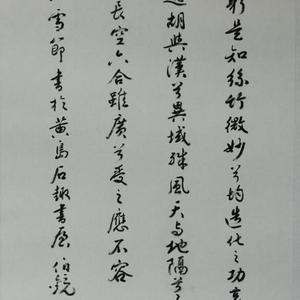 窮是知絲竹微妙兮均造化之功哀
通胡與漢兮異域殊風天与地隔兮子
長空六合雖廣兮受之應不容
雪節書於黄島石趣書屋 伯